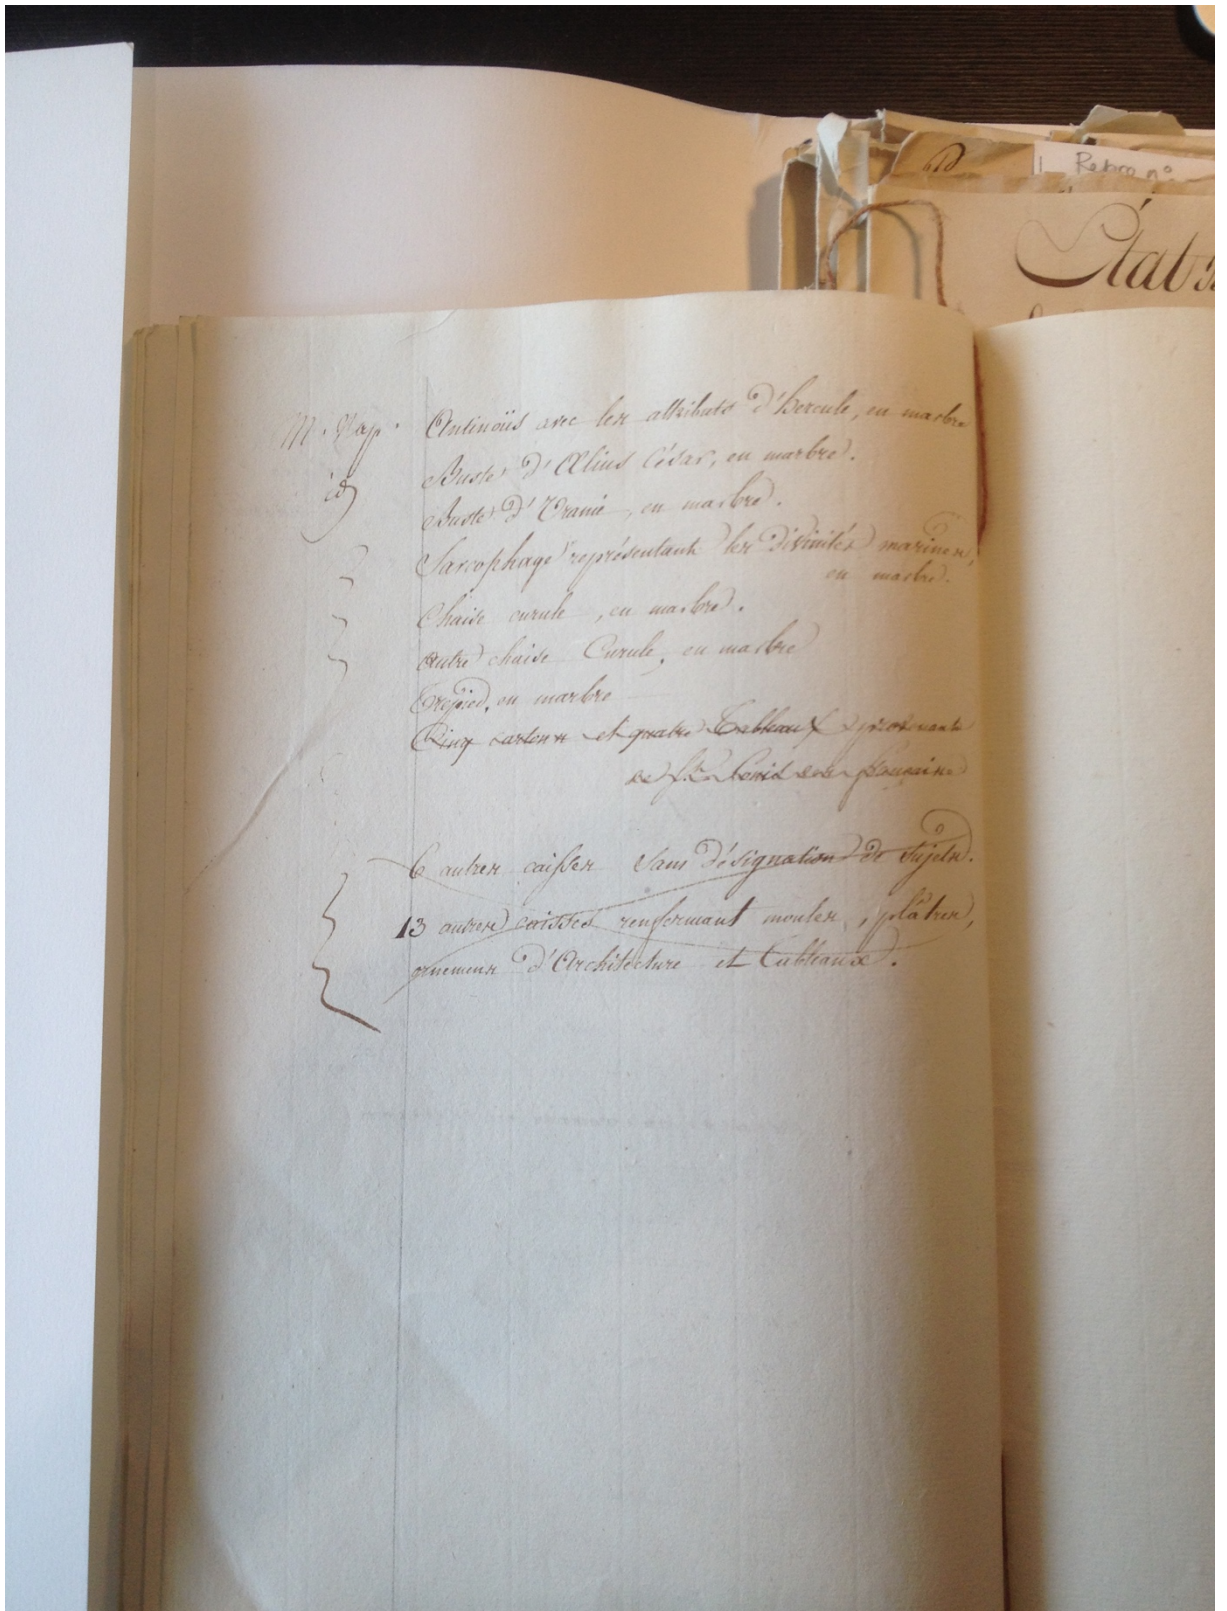 Rebroo n°
État
M. Nap. Antinoüs avec les attributs d'hercule, en marbre
id Buste d'Ælius César, en marbre.
Buste d'Uranie, en marbre.
Sarcophage représentant les divinités marines,
en marbre.
Chaise curule, en marbre.
Autre chaise Curule, en marbre
Trépied, en marbre
Cinq cartons et quatre Tableaux provenants
de St Louis des français
6 autres caisses sans désignation de Sujets.
13 autres caisses renfermant moules, plâtres,
ornemens d'Architecture et Tableaux.